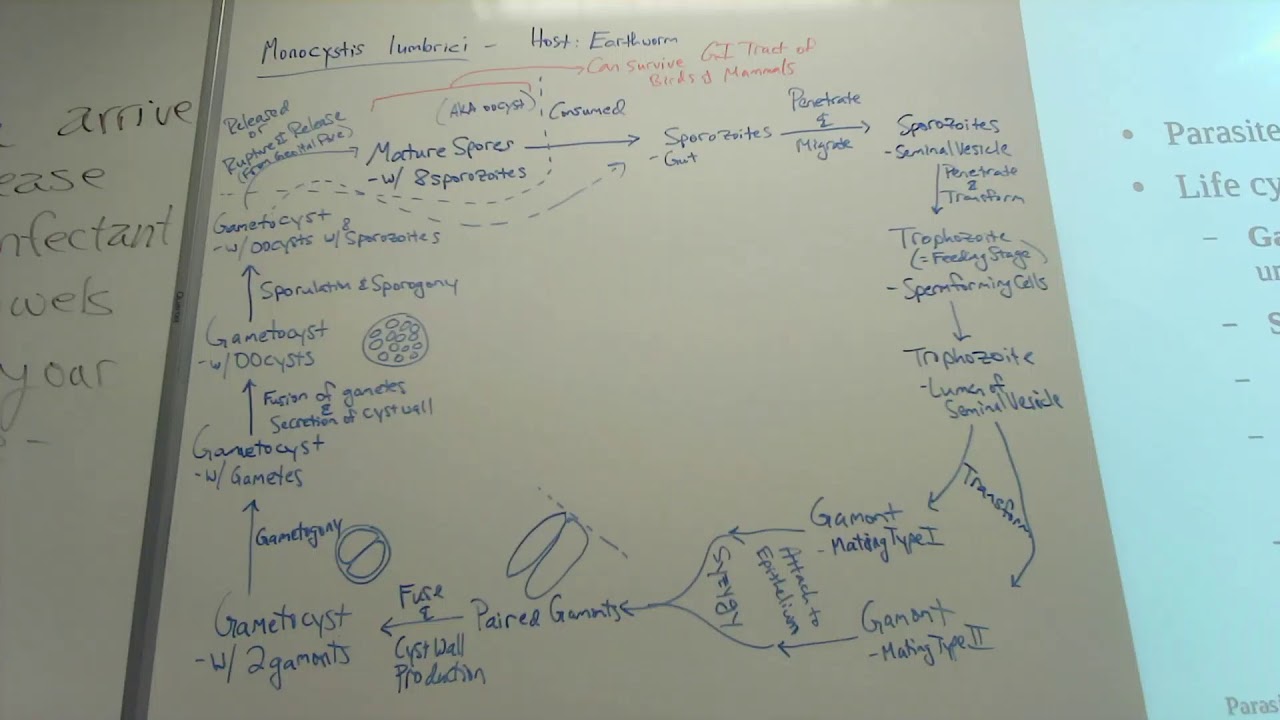 Monocystis lumbrici - Host: Earthworm
Can survive GI Tract of
Birds & Mammals
Released
or
Rupture & Release
(From Genital Pore)
(AKA oocyst)
Consumed
Mature Spores
- w/ 8 sporozoites
Sporozoites
- Gut
Penetrate
&
Migrate
Sporozoites
- Seminal Vesicle
Penetrate
&
Transform
Trophozoite
(= Feeding Stage)
- Sperm forming Cells
Trophozoite
- Lumen of
Seminal Vesicle
Transform
Gamont
- Mating Type I
Gamont
- Mating Type II
Attach to
Epithelium
Syzygy
Paired Gamonts
Fuse
&
Cyst Wall
Production
Gametocyst
- w/ 2 gamonts
Gametogony
Gametocyst
- w/ Gametes
Fusion of gametes
&
Secretion of cyst wall
Gametocyst
- w/ OOcysts
Sporulation & Sporogony
Gametocyst
- w/ OOcysts w/ Sporozoites
&
arrive
ease
nfectant
wels
your
• Parasite
• Life cy
– Ga
un
– S
–
–
Paras